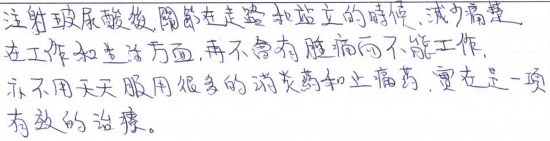 注射玻尿酸後,關節在走路和站立的時候,減少痛楚
在工作和生活方面,再不會有腫痛而不能工作,
亦不用天天服用很多的消炎药和止痛药,實在是一項
有效的治療。